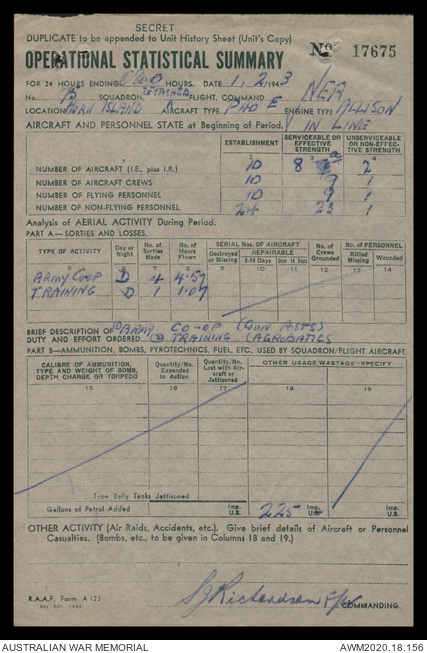 SECRET
DUPLICATE to be appended to Unit History Sheet (Unit's Copy)
OPERATIONAL STATISTICAL SUMMARY
No 17675
FOR 24 HOURS ENDING HOURS. DATE 1. 2. 1943
No. 15 SQUADRON, DETACHED FLIGHT, COMMAND NEA
LOCATION HORN ISLAND AIRCRAFT TYPE P40 E ENGINE TYPE ALLISON
AIRCRAFT AND PERSONNEL STATE at Beginning of Period. V IN LINE
ESTABLISHMENT SERVICEABLE OR EFFECTIVE STRENGTH UNSERVICEABLE OR NON-EFFECTIVE STRENGTH
1 2 3 4
NUMBER OF AIRCRAFT (I.E., plus I.R.) 10 8 2
NUMBER OF AIRCRAFT CREWS 10 9 1
NUMBER OF FLYING PERSONNEL 10 9 1
NUMBER OF NON-FLYING PERSONNEL 24 23 1
Analysis of AERIAL ACTIVITY During Period.
PART A—SORTIES AND LOSSES.
TYPE OF ACTIVITY Day or Night No. of Sorties Made No. of Hours Flown SERIAL Nos. OF AIRCRAFT Destroyed or Missing REPAIRABLE 2-14 Days Over 14 Days No. of Crews Grounded No. of PERSONNEL Killed Missing Wounded
5 6 7 8 9 10 11 12 13 14
ARMY COOP D 4 4.57
TRAINING D 1 1.07
BRIEF DESCRIPTION OF DUTY AND EFFORT ORDERED (1) ARMY CO-OP (GUN POSTS)
(2) TRAINING (AEROBATICS
PART B—AMMUNITION, BOMBS, PYROTECHNICS, FUEL, ETC., USED BY SQUADRON/FLIGHT AIRCRAFT.
CALIBRE OF AMMUNITION, TYPE AND WEIGHT OF BOMB, DEPTH CHARGE OR TORPEDO Quantity/No. Expended in Action Quantity/No. Lost with Aircraft or Jettisoned OTHER USAGE/WASTAGE—SPECIFY
15 16 17 18 19
Type Belly Tanks Jettisoned
Gallons of Petrol Added Imp. U.S. 225 Imp. U.S. Imp. U.S.
OTHER ACTIVITY (Air Raids, Accidents, etc.). Give brief details of Aircraft or Personnel
Casualties. (Bombs, etc., to be given in Columns 18 and 19.)
Richardson F/Lt COMMANDING.
R.A.A.F. Form A 123
AUSTRALIAN WAR MEMORIAL
AWM2020.18.156